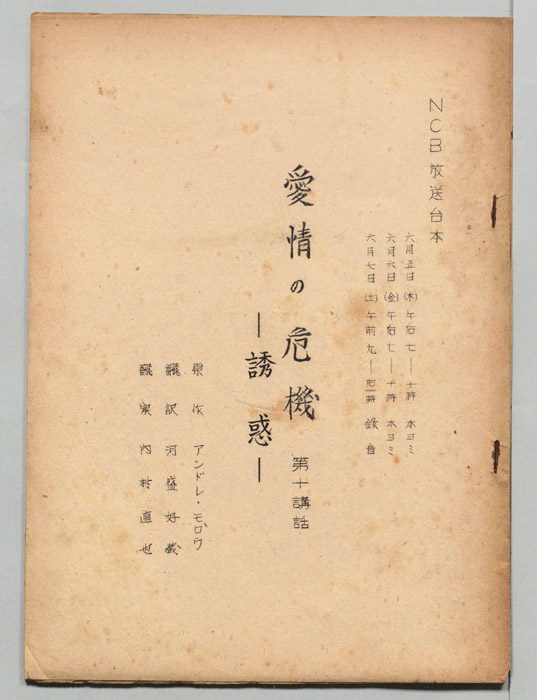 NCB放送台本
六月五日(木)午后七―十時 本ヨミ
六月六日(金)午后七―十時 本ヨミ
六月七日(土)午前九― 時 錄音
愛情の危機 第十講話
―誘惑―
原作 アンドレ・モロワ
飜訳 河盛好蔵
飜案 内村直也